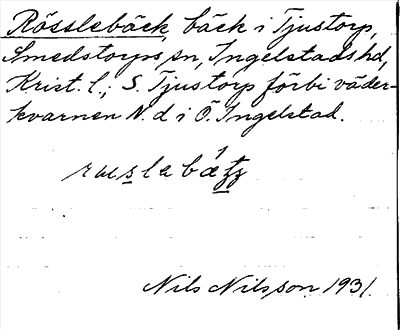 Rösslebäck bäck i Tjustorp,
Smedstorps sn, Ingelstads hd,
Krist. l.; S. Tjustorp förbi väder-
kvarnen N. d i Ö. Ingelstad.
Nils Nilsson 1931.